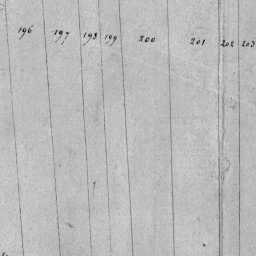 196 197 198 199 200 201 202 203